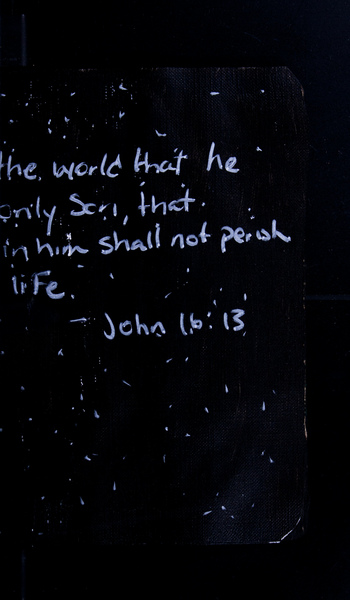 the world that he
only Son, that
in him shall not perish
life.
— John 16:13